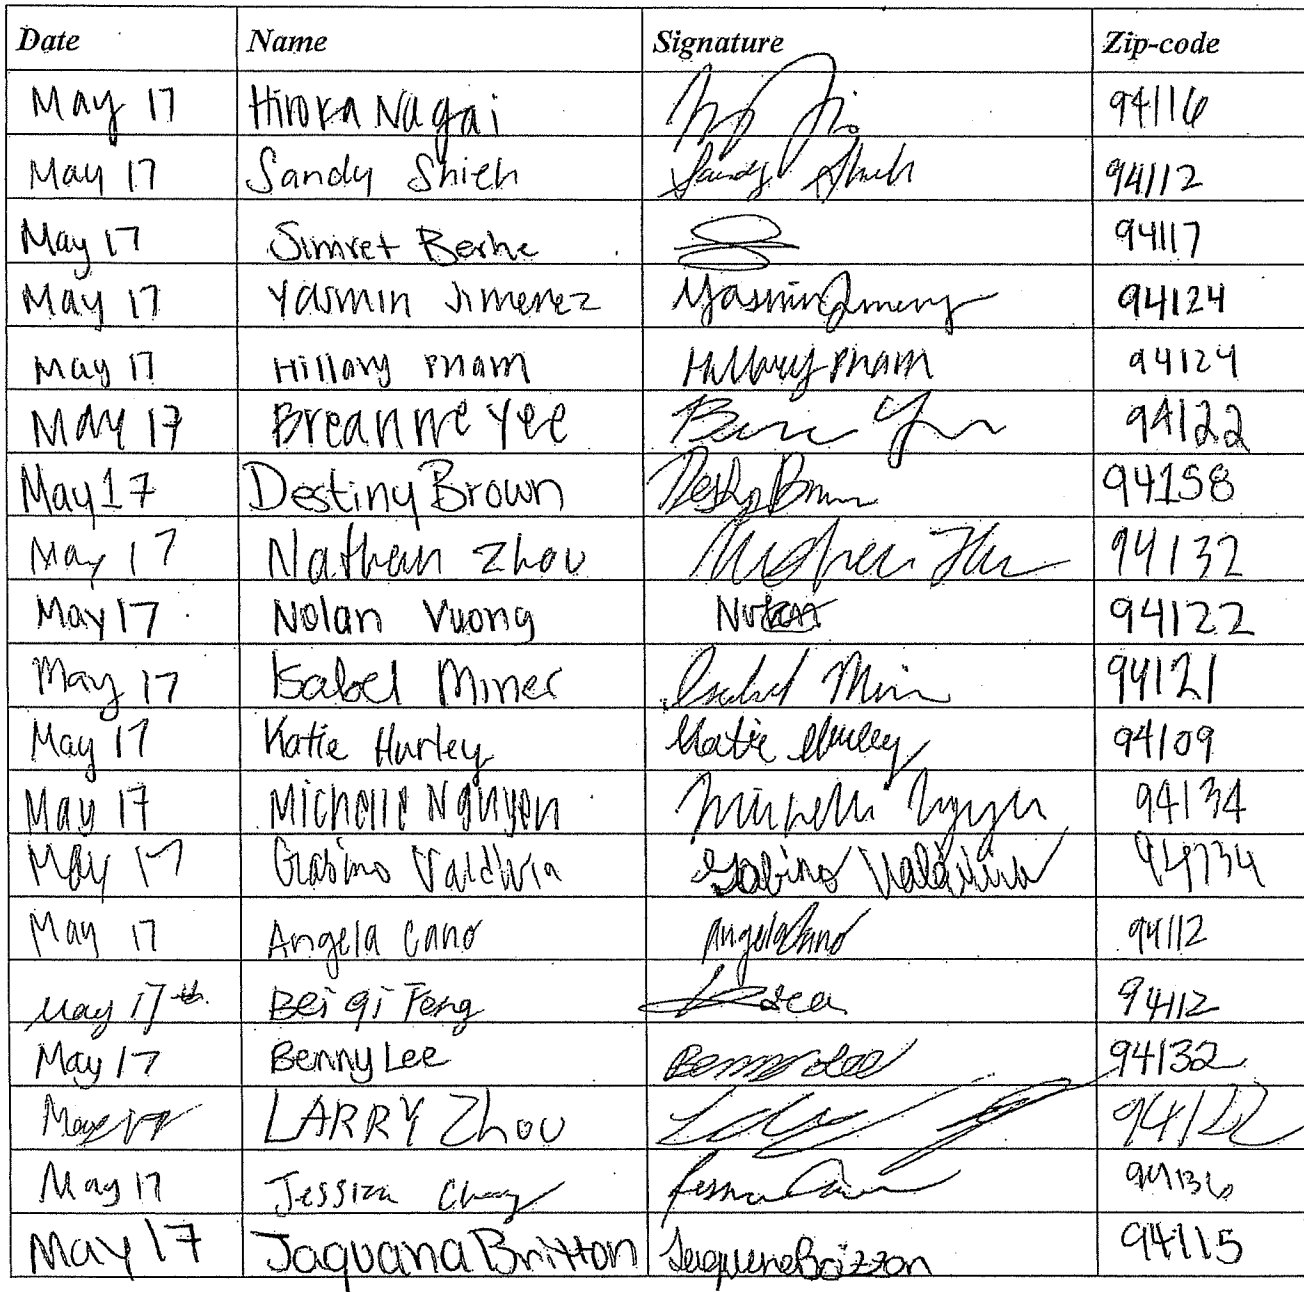 Date Name Signature Zip-code
May 17 Hiroka Nagai 94116
May 17 Sandy Shieh Sandy Shieh 94112
May 17 Simret Berhe 94117
May 17 Yasmin Jimenez Yasmin Jimenez 94124
May 17 Hillary Pham Hillary Pham 94124
May 17 Breanne Yee 94122
May 17 Destiny Brown Destiny Brown 94158
May 17 Nathan Zhou 94132
May 17 Nolan Vuong Nolan 94122
May 17 Isabel Miner Isabel 94121
May 17 Katie Hurley Katie Hurley 94109
May 17 Michelle Nguyen Michelle Nguyen 94134
May 17 Gabino Valdivia Gabino Valdivia 94134
May 17 Angela Cano Angela Cano 94112
May 17th Bei qi Feng 94112
May 17 Benny Lee Benny Lee 94132
May 17 LARRY Zhou 94122
May 17 Jessica 
May 17 Jaquana Britton 94115